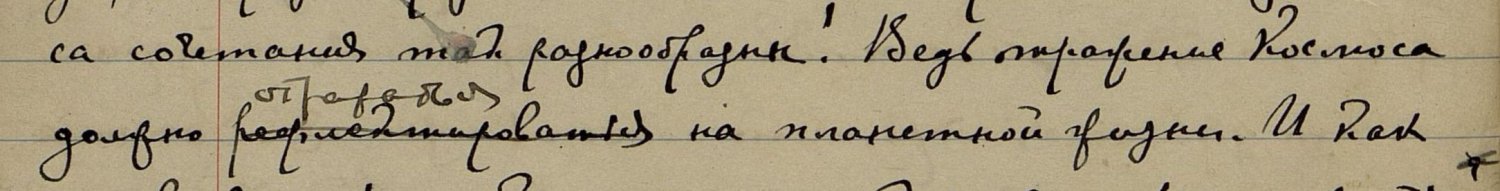 са сочетания так разнообразны! Ведь тражение Космоса
отражаться
должно рефлектироваться на планетной жизни. И как